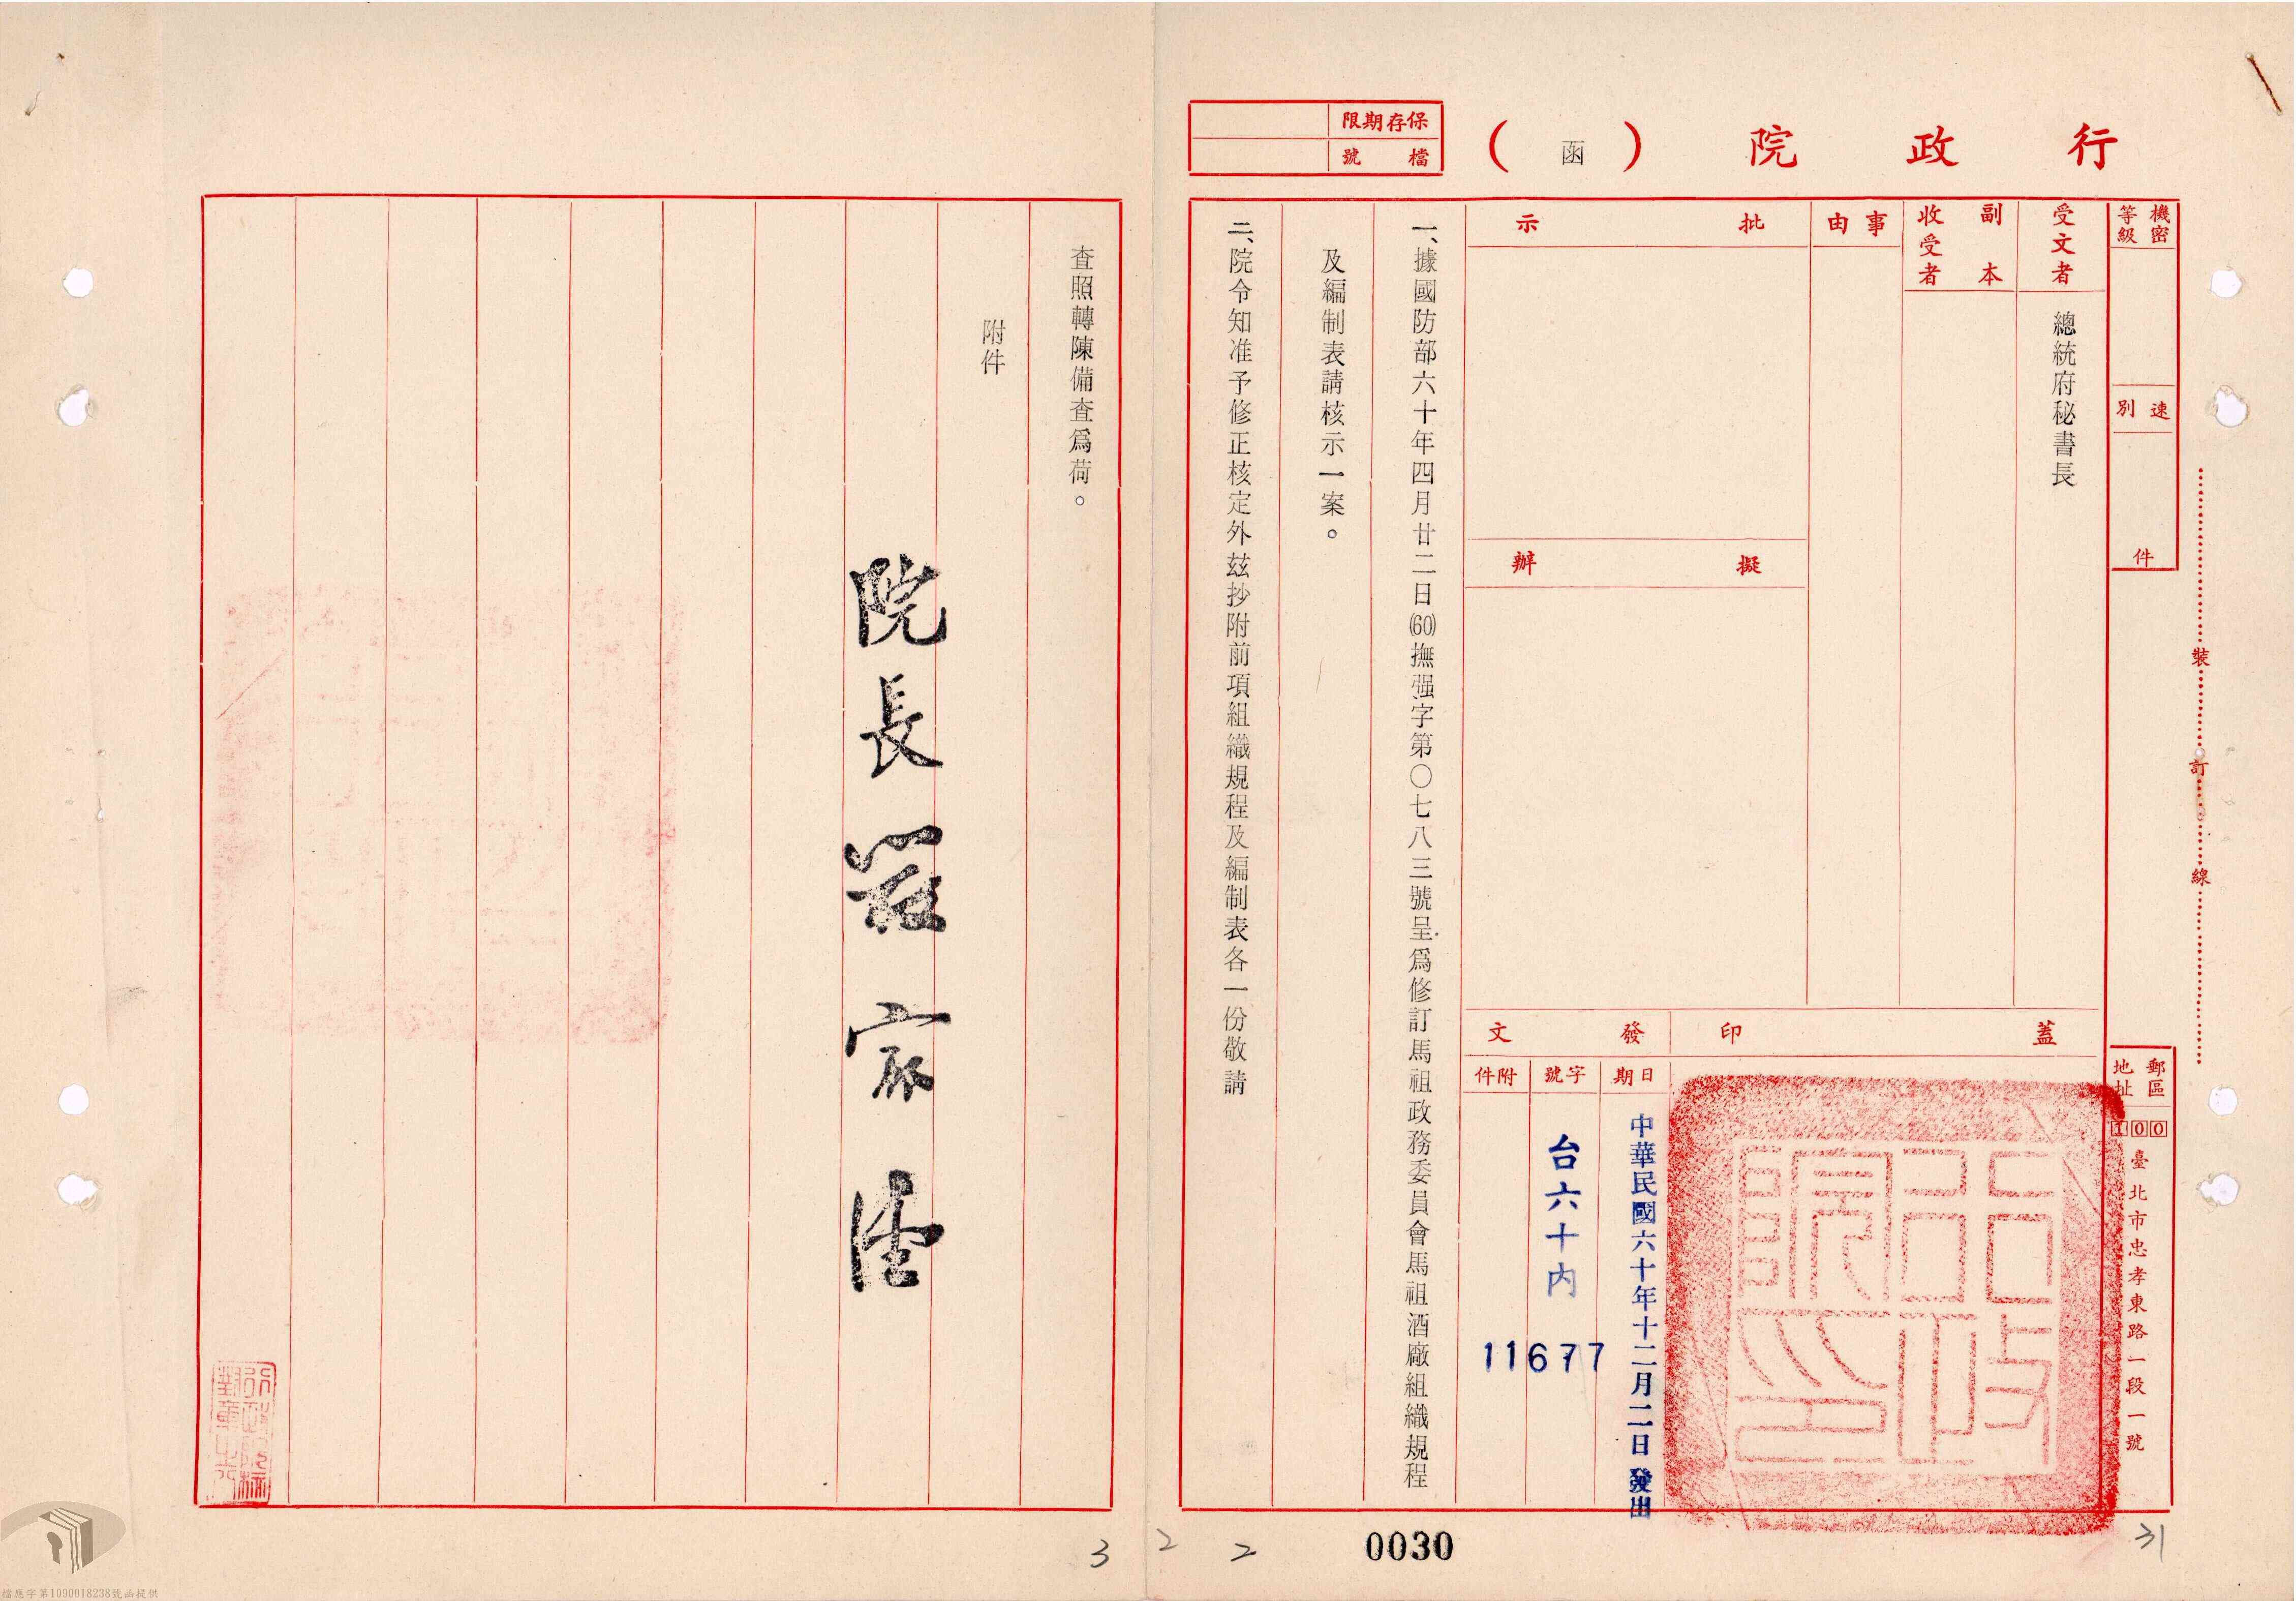 行政院
（函）
保存期限
檔號
機密等級
速別
件
受文者
總統府秘書長
副本收受者
事由
批示
擬辦
蓋印
發文
日期
中華民國六十年十二月二日發出
字號
台六十內
11677
附件
郵區
地址
100
臺北市忠孝東路一段一號
裝
訂
線
行政院印
一、據國防部六十年四月廿二日(60)撫强字第〇七八三號呈為修訂馬祖政務委員會馬祖酒廠組織規程
及編制表請核示一案。
二、院令知准予修正核定外茲抄附前項組織規程及編制表各一份敬請
查照轉陳備查爲荷。
附件
院長嚴家淦
0030
31
2
2
3
檔應字第1090018238號函提供